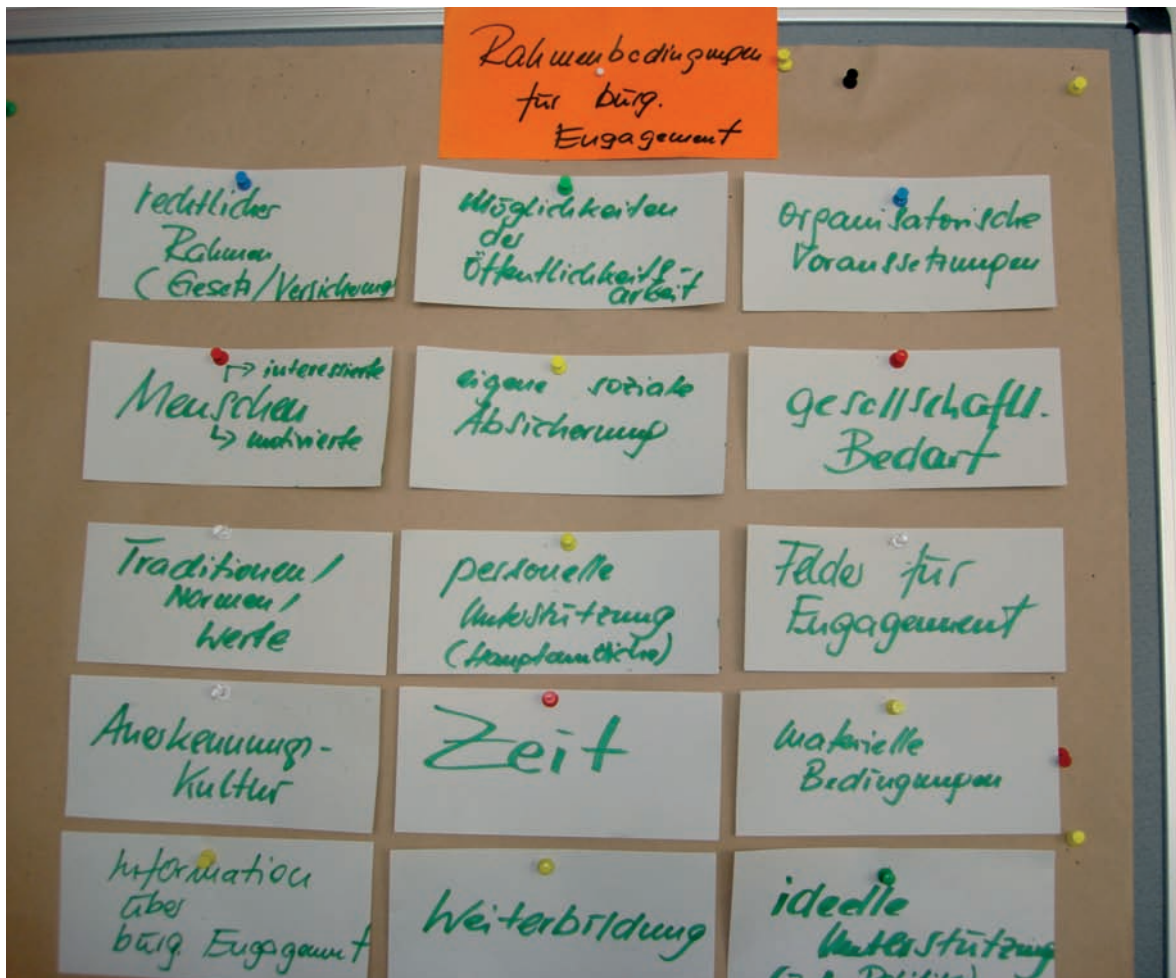 Rahmenbedingungen
für bürg.
Engagement
rechtlicher
Rahmen
(Gesetz/Versicherung
Möglichkeiten
der
Öffentlichkeits-
arbeit
organisatorische
Voraussetzungen
Menschen
↱ interessierte
↳ motivierte
eigene soziale
Absicherung
gesellschaftl.
Bedarf
Traditionen/
Normen/
Werte
personelle
Unterstützung
(Hauptamtliche)
Felder für
Engagement
Anerkennungs-
Kultur
Zeit
materielle
Bedingungen
Information
über
bürg. Engagemt
Weiterbildung
ideelle
Unterstützung